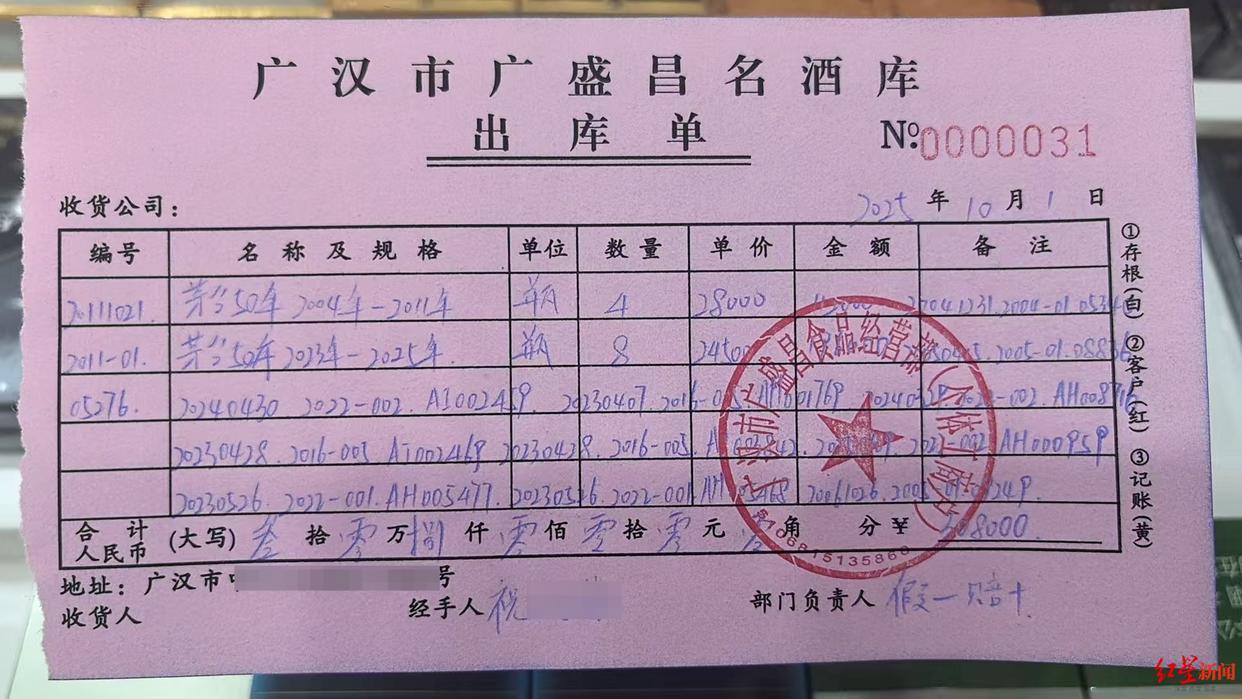 广汉市广盛昌名酒库
出库单
№:0000031
收货公司:
2025年10月1日
编号 名称及规格 单位 数量 单价 金额 备注
20111021. 茅台50年 2004年-2011年 瓶 4 28000 20041231.2004-01.05340
2011-01. 茅台50年 2023年-2025年. 瓶 8 24500 2005-01.08836
05276. 20240430 2022-002. AI002459 20230407. 2022-002. AH008716
20230428. 2016-003 AI002469 20230428. 2016-003. 2022-002 AH000959
20230526. 2022-001. AH005477. 20230526. 2022-001 20061026.
合计人民币 (大写) 叁拾零万捌仟零佰零拾零元零角 分¥ 308000
地址:广汉市 号
收货人 经手人 祝 部门负责人 假一赔十
①存根(白) ②客户(红) ③记账(黄)
广汉市广盛昌食品经营部(个体工商户)
5106815135860
红星新闻